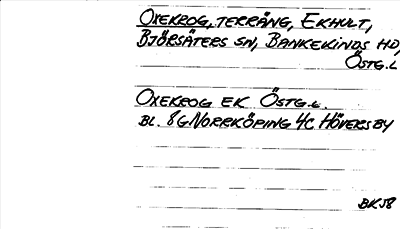 OXEKROG, TERRÄNG, EKHULT,
BJÖRSÄTERS SN, BANKEKINDS HD,
ÖSTG.L
OXEKROG EK ÖSTG.L.
BL. 8G NORRKÖPING 4C HÖVERSBY
BKJ8